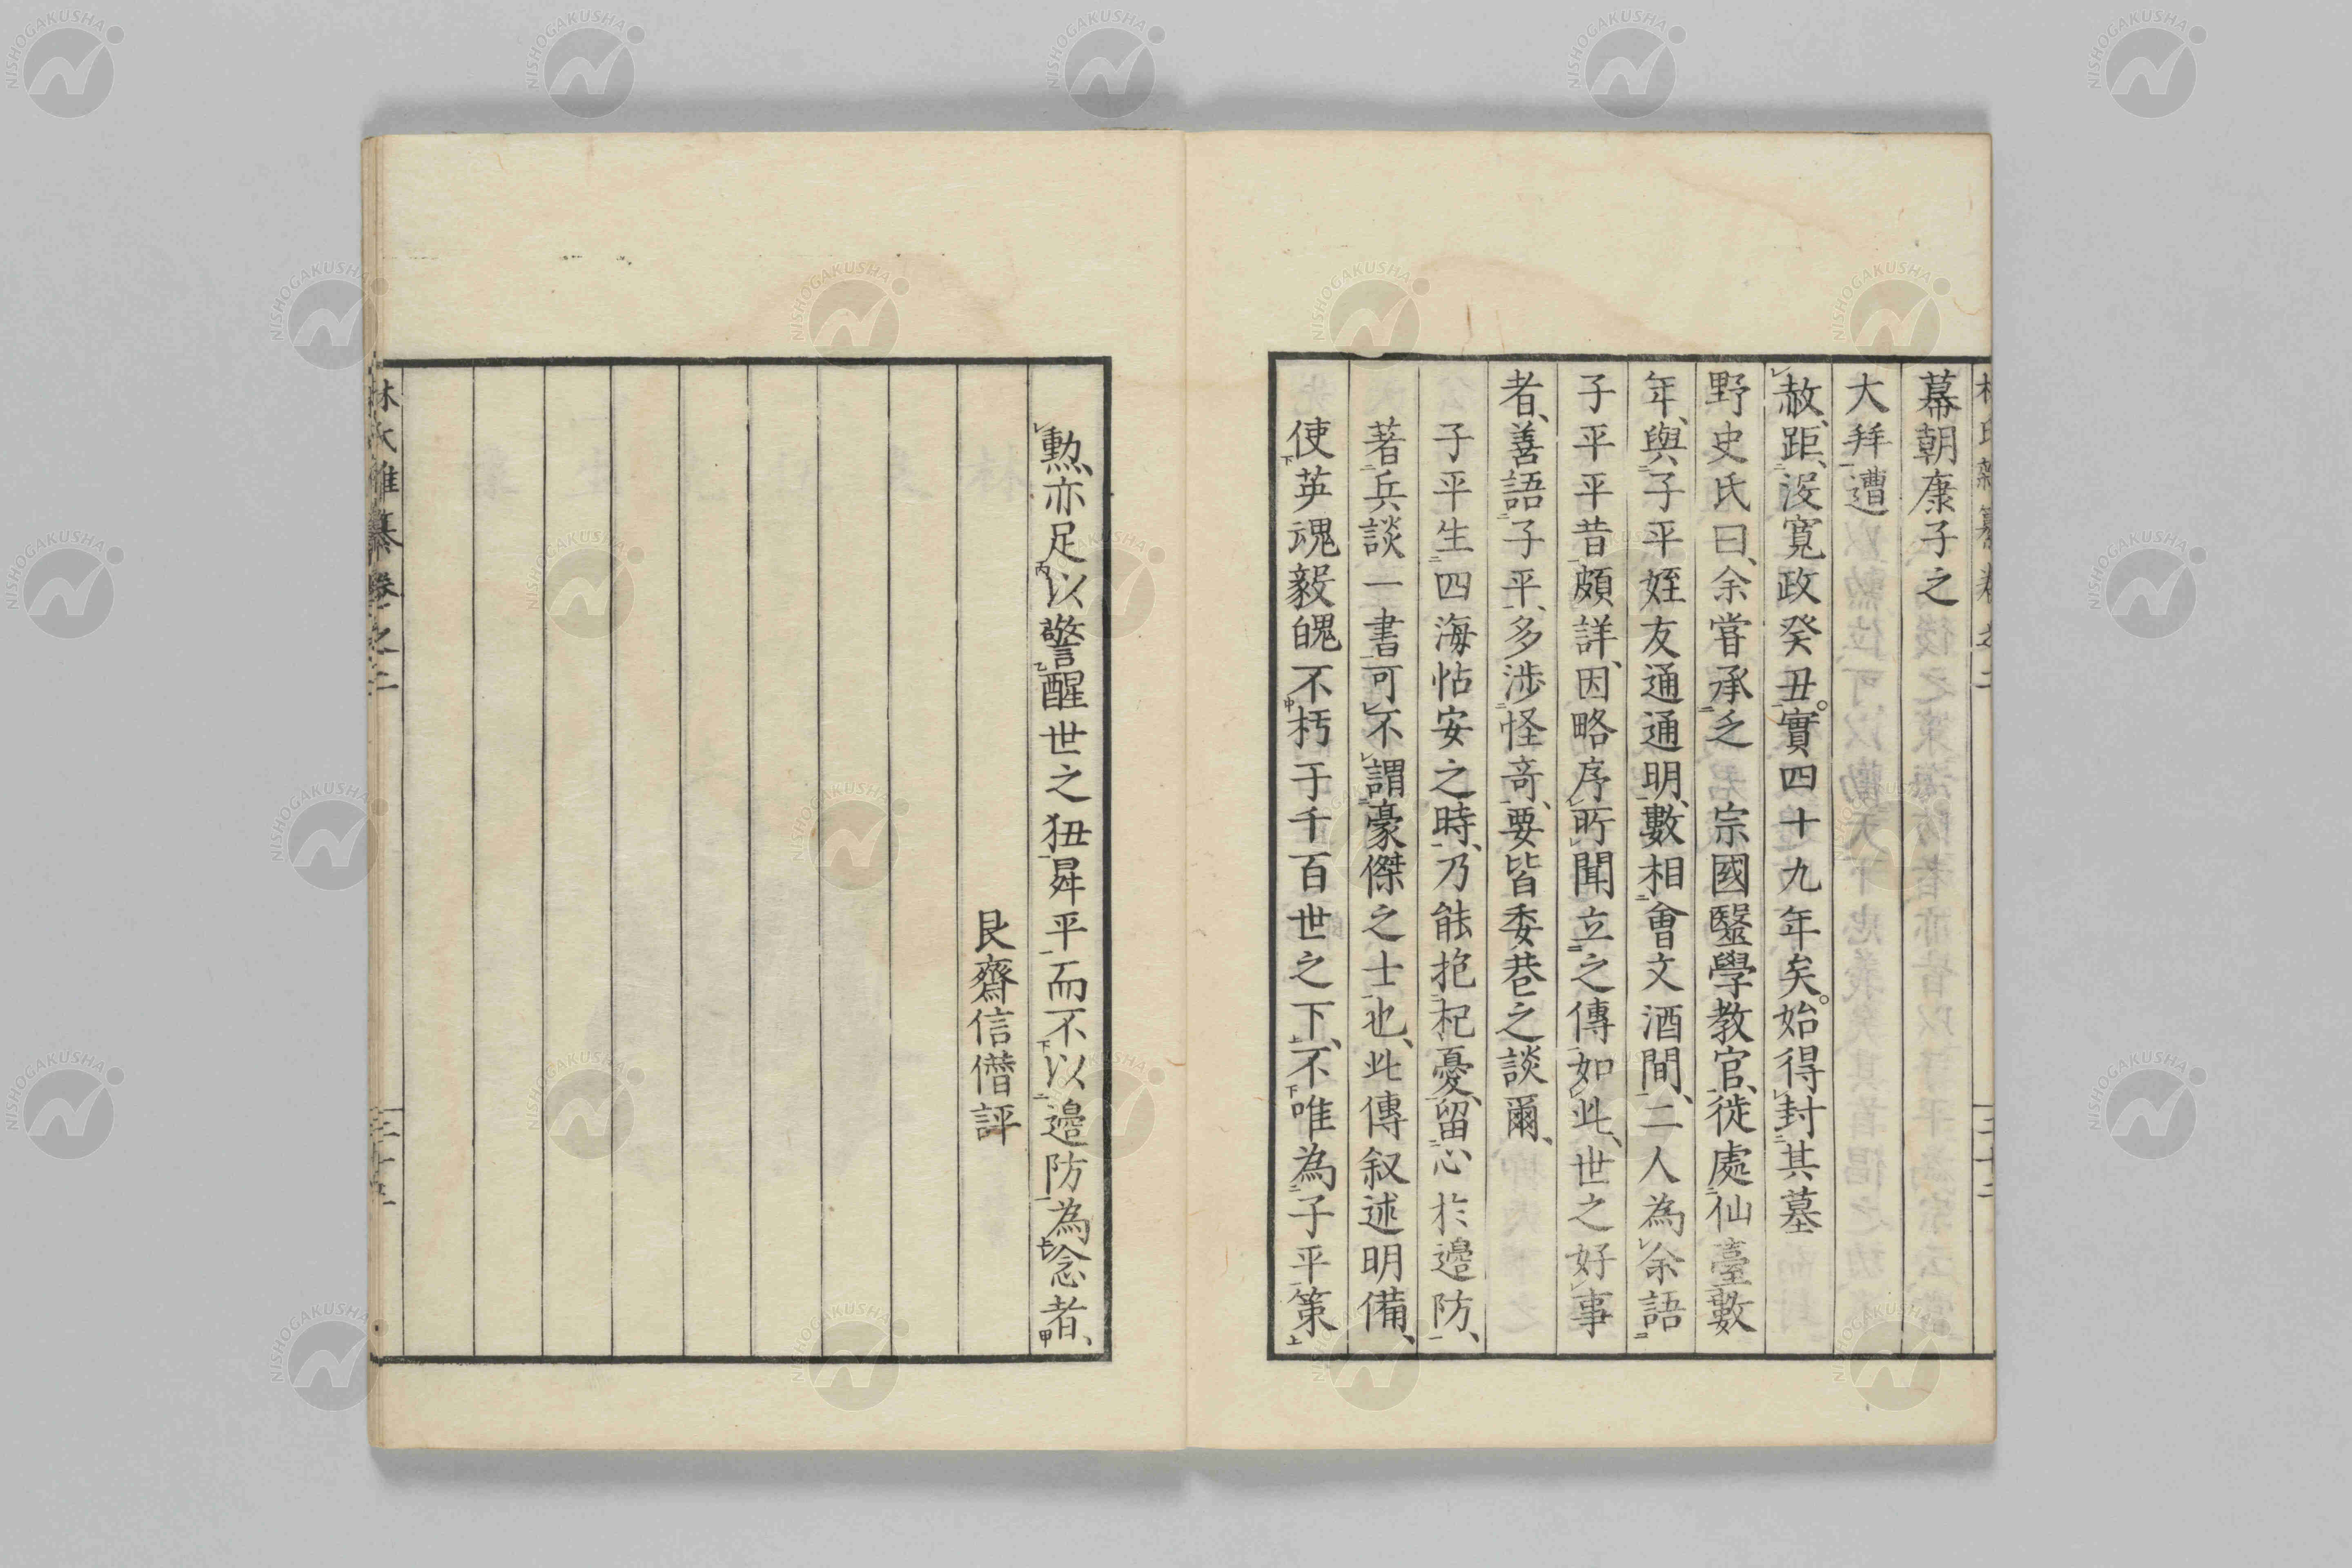 幕朝康子之
大拜遭
赦、距沒寛政癸丑。實四十九年矣。始得封其墓
野史氏曰、余嘗承乏　宗國醫學教官、徙處仙臺數
年、與子平姪友通通明、數相會文酒間、二人為余語
子平平昔頗詳、因略序所聞立之傳如此、世之好事
者、善語子平、多渉怪奇、要皆委巷之談爾、
子平生四海怗安之時、乃能抱杞憂、留心於邊防、
著兵談一書可不謂豪傑之士也、此傳叙述明備、
使英魂毅魄不朽于千百世之下、不唯為子平策
勲、亦足以警醒世之狃昇平而不以邊防為念者、
艮齋信僭評
林氏雜纂卷之二
NISHOGAKUSHA